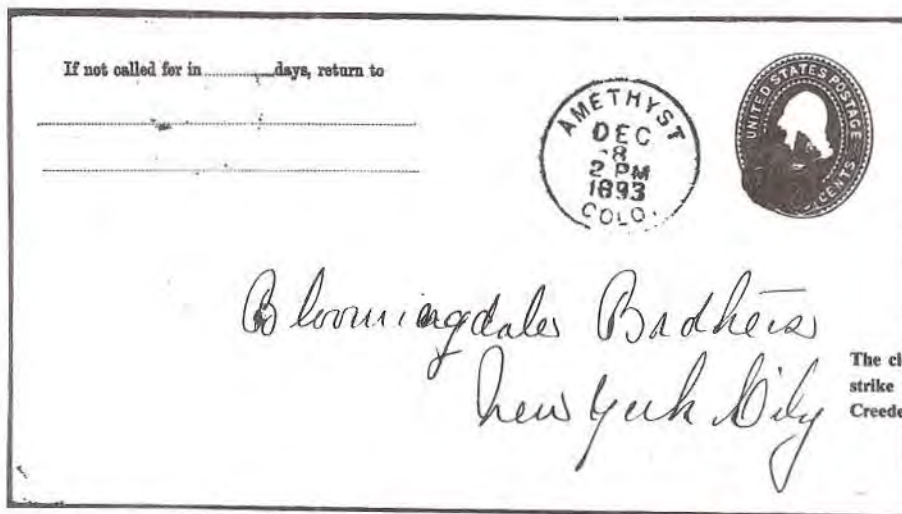 If not called for in ............ days, return to
AMETHYST
DEC
8
2 PM
1893
COLO.
UNITED STATES POSTAGE
CENTS
Bloomingdales Brothers
New York City
The
strike
Creede